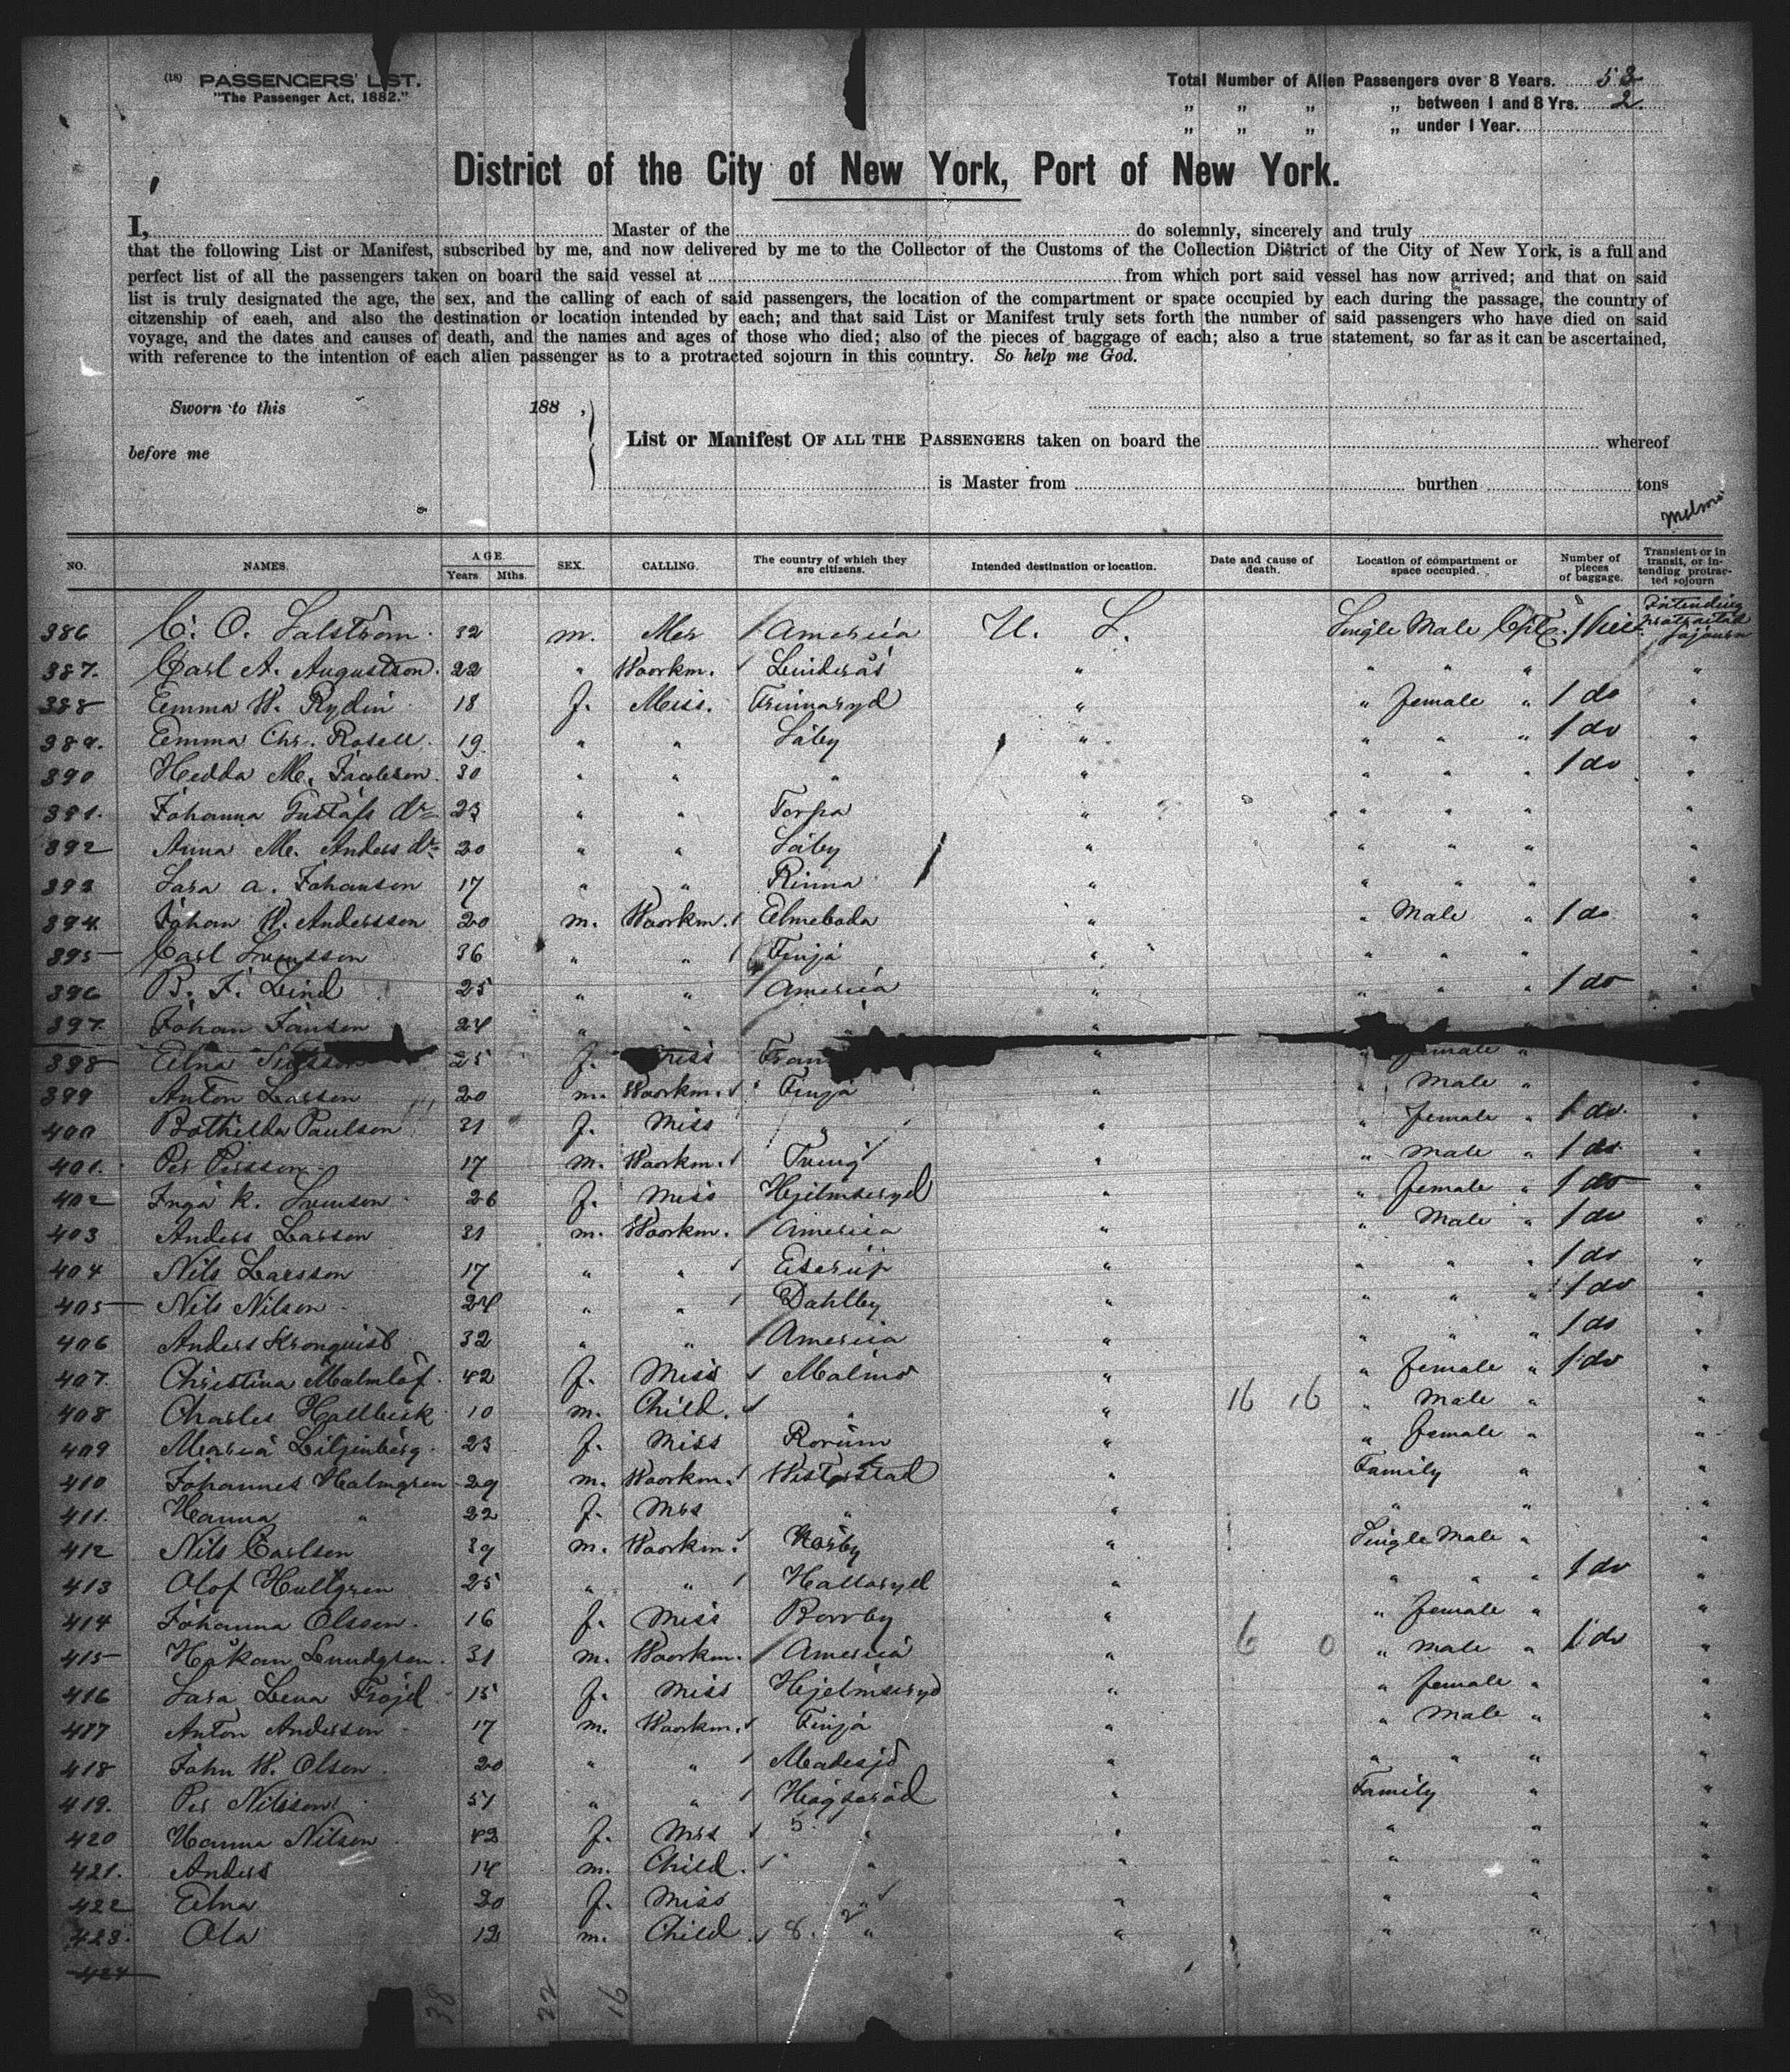 (18) PASSENGERS' LIST.
"The Passenger Act, 1882."
Total Number of Alien Passengers over 8 Years. 53
„ „ „ „ between 1 and 8 Yrs. 2.
„ „ „ „ under 1 Year.
District of the City of New York, Port of New York.
I, Master of the do solemnly, sincerely and truly
that the following List or Manifest, subscribed by me, and now delivered by me to the Collector of the Customs of the Collection District of the City of New York, is a full and
perfect list of all the passengers taken on board the said vessel at from which port said vessel has now arrived; and that on said
list is truly designated the age, the sex, and the calling of each of said passengers, the location of the compartment or space occupied by each during the passage, the country of
citzenship of eaeh, and also the destination or location intended by each; and that said List or Manifest truly sets forth the number of said passengers who have died on said
voyage, and the dates and causes of death, and the names and ages of those who died; also of the pieces of baggage of each; also a true statement, so far as it can be ascertained,
with reference to the intention of each alien passenger as to a protracted sojourn in this country. So help me God.
Sworn to this 188 ,
before me
List or Manifest OF ALL THE PASSENGERS taken on board the whereof
is Master from burthen tons
NO. NAMES. AGE. Years. Mths. SEX. CALLING. The country of which they are citizens. Intended destination or location. Date and cause of death. Location of compartment or space occupied. Number of pieces of baggage. Transient or in transit, or intending protracted sojourn
386 C. O. Salström 32 m. Mer / America U. S. Single Male Intending protracted sojourn
387. Carl A. Augustson 22 " Woorkm. Linderås " " " " "
388 Emma W. Rydin 18 f. Miss. Frinnaryd " " female " 1 do "
389. Emma Chr. Rosell 19 " " Säby " " " " 1 do "
390 Hedda M. Jacobson 30 " " " " " " " 1 do "
391. Johanna Gustafs dr 23 " " Torpa " " " " "
392 Anna M. Anders dr 20 " " Säby " " " " "
393 Sara A. Johanson 17 " " Rinna " " " " "
394. Johan W. Andersson 20 m. Woorkm. Elmeboda " " Male " 1 do "
395 Carl Svensson 36 " " Finja " " " " "
396 B. F. Lind 25 " " / America " " " " 1 do "
397. Johan Janson 24 " " "
398 Elna 25 f. Miss " " female "
399 Anton Larson 20 m. Woorkm. Finja " " Male " "
400 Bothilda Paulson 31 f. Miss " " " female " 1 do "
401. Per Persson 17 m. Woorkm. " " Male " 1 do "
402 Inga K. Svenson 26 f. Miss Hjelmseryd " " female " 1 do "
403 Anders Larson 31 m. Woorkm. / America " " Male " 1 do "
404 Nils Larsson 17 " " Eserup " " " " 1 do "
405 Nils Nilson 24 " " Dahlby " " " " 1 do "
406 Anders Kronquist 32 " " / America " " " " 1 do "
407. Christina Malmlöf 42 f. Miss Malmö " " female " 1 do "
408 Charles Hallbeck 10 m. Child. " " 16 16 " Male " "
409 Maria Liljenberg 23 f. Miss Rorum " " female " "
410 Johannes Halmgren 29 m. Woorkm. Westerstad " Family " "
411. Hanna " 22 f. Mrs " " " " "
412 Nils Carlson 39 m. Woorkm. Hörby " Single Male " "
413 Olof Hultgren 25 " " Hallaryd " " " " 1 do "
414 Johanna Olsson 16 f. Miss Borrby " " female " "
415 Håkan Lundgren 31 m. Woorkm. / America " 6 0 " Male " 1 do "
416 Sara Lena Fröjd 15 f. Miss Hjelmseryd " " female " "
417 Anton Anderson 17 m. Woorkm. Finja " " Male " "
418 John W. Olson 20 " " Madesjö " " " " "
419. Per Nilsson 51 " " Högseröd " Family " "
420 Hanna Nilson 42 f. Mrs 5 " " " " "
421. Anders 14 m. Child. " " " " "
422 Elna 20 f. Miss " " " " "
423. Ola 12 m. Child 8. 2 " " " " "
424
38 22 16